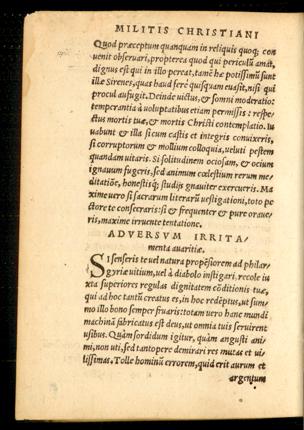 MILITIS CHRISTIANI
Quod præceptum quanquam in reliquis quoq; con
uenit obseruari, propterea quod qui periculũ amat,
dignus est qui in illo pereat, tamẽ hæ potissimũ sunt
illæ Sirenes, quas haud ferè quisquam euasit, nisi qui
procul aufugit. Deinde uictus, & somni moderatio:
temperantia à uoluptatibus etiam permissis: respe/
ctus mortis tuæ, & mortis Christi contemplatio. Iu
uabunt & illa si cum castis et integris conuixeris,
si corruptorum & mollium colloquia, ueluti pestem
quandam uitaris. Si solitudinem ociosam, & ocium
ignauum fugeris, sed animum cælestium rerum me
ditatiõe, honestisq; studijs gnauiter exercueris. Ma
xime uero si sacrarum literarũ uestigationi, toto pe
ctore te consecraris: si & frequenter & pure oraue/
ris, maxime irruente tentatione.
ADVERSVM IRRITA/
menta auaritiæ.
SI senseris te uel natura propẽsiorem ad philar/
gyriæ uitium, uel à diabolo instigari, recole iu
xta superiores regulas dignitatem cõditionis tuæ,
qui ad hoc tantũ creatus es, in hoc redẽptus, ut sum/
mo illo bono semper fruaris: totam uero hanc mundi
machinã fabricatus est deus, ut omnia tuis seruirent
usibus. Quàm sordidum igitur, quàm angusti ani/
mi, non uti, sed tantopere demirari res mutas et ui/
lissimas. Tolle hominũ errorem, quid erit aurum et
argentum